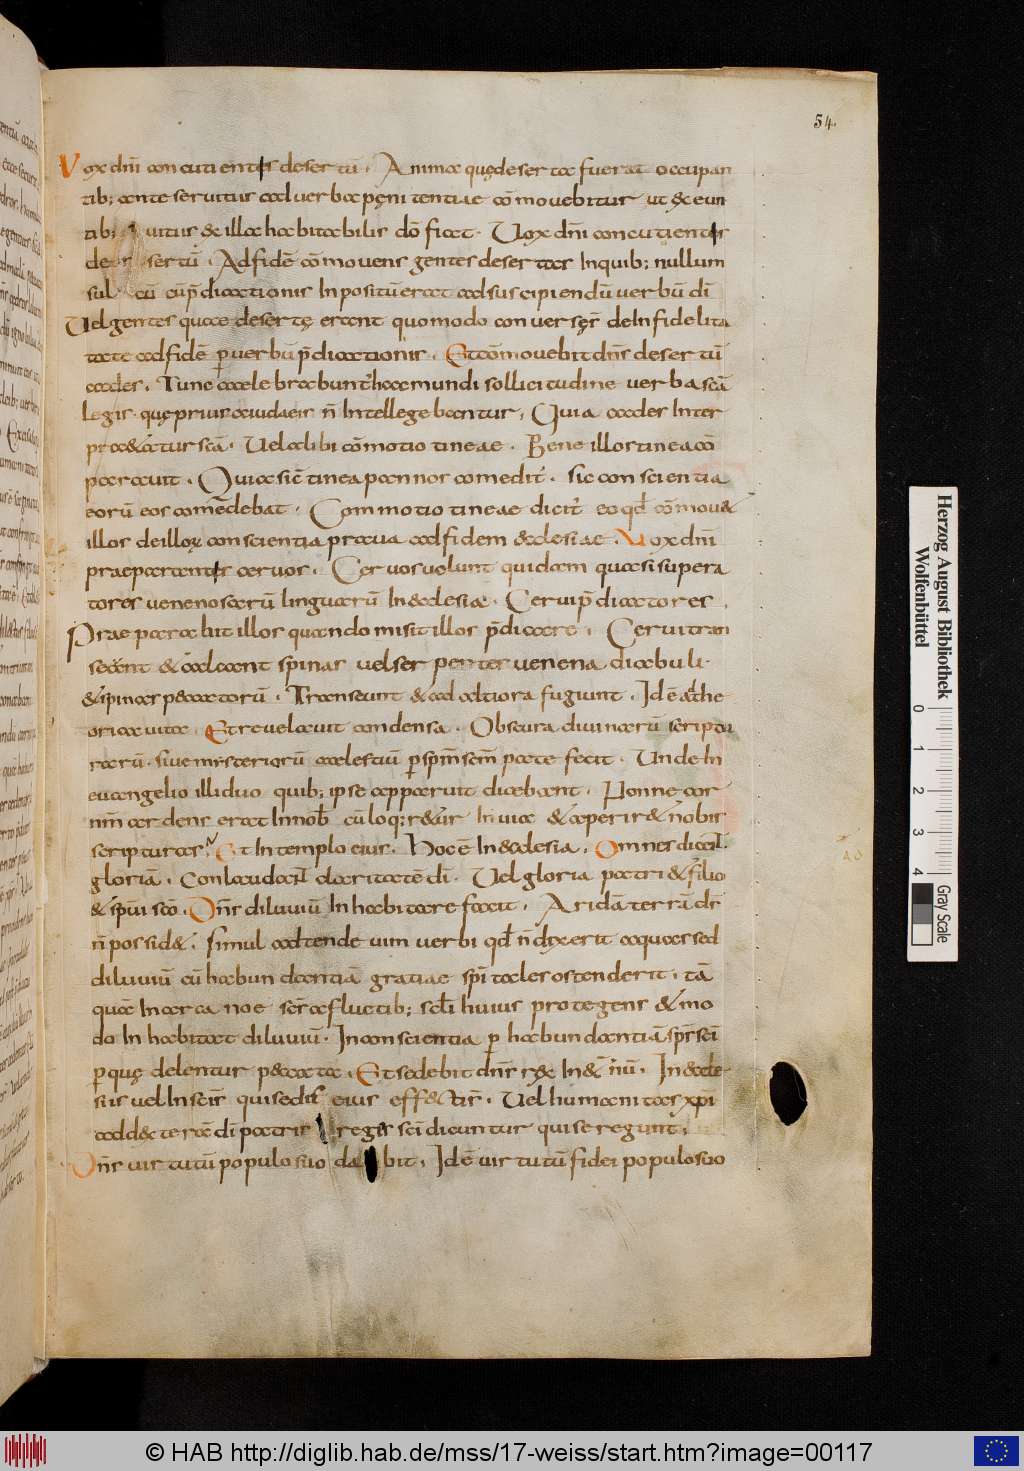 54.
Vox dn̄i concutientis desertū. Anima quę deserta fuerat occupan
tib; ante servitur ad verba pęnitentiae cōmovebitur ut & eun
tib; vitur & illa habitabilis dō fiat. Vox dn̄i concutientis
desertū. Ad fidē cōmovens gentes desertas In quib; nullum
sul cū p̄dicationis In positū erat ad suscipiendū verbū dī
Vel gentes quae desertę erant quomodo conversę sr̄ de Infidelita
tate ad fidē p verbū p̄dicationis. Et cōmovebit dn̄s desertū
cades. Tunc celebrabunt hac mundi sollicitudine verba scā
legis. quę prius a iudaeis n̄ Intellegebantur, Quia cades Inter
pra&atur scā. Vel alibi cōmotio tineae. Bene illos tinea cō
paravit. Quia sic tinea pannos comedit. sic conscientia
eorū eos comēdebat. Commotio tineae dicit eo qd cōmov&
illos de illor conscientia prava ad fidem &clesiae. Vox dn̄i
praeparantis cervos. Cervos volunt quidam quasi supera
tores venenosarū linguarū In &clesia. Cervi p̄dicatores,
Prae parabit illos quando misit illos p̄dicare. Cervi tran
seant & calcant spinas vel serpentes venena diabuli.
& spinas p&catorū. Transeunt & ad altiora fugiunt. Id ē ad the
orica vita. Et revelavit condensa. Obscura divinarū scriptu
rarū. sive misteriorū caelestiū p spm̄ sem̄ pate fecit. Unde In
euangelio illi duo quib; ipse apparuit dicebant. Nonne cor
nrm̄ ardens erat In nob cū loq;r&ur In via & aperir& nobis
scripturas, Et In templo eius. Hoc ē In &clesia. Omnes dicent
gloriā. Conlaudacit claritatē dī. Vel gloria patri & filio
& spui sco. Dn̄s diluviū Inhabitare facit. Aridā terrā dr̄
n̄ possid&. simul adtende vim verbi qd n̄ dixerit aquas sed
diluviū cū habundantiā gratiae spi tales ostenderit. tā
quā In arca noe sēr a fluctib; scli huius protegens & mo
do Inhabitat diluviū. In conscientia p habundantiā sps sci
p quę delentur p&cata. Et sedebit dn̄s rex In&nū. In &cle
siis vel In scis qui sedis eius eff&ti sr̄. Vel humanitas xpi
ad dexterā dī patris regis sci dicuntur qui se regunt.
Dn̄s virtutū populo suo dabit. Id ē virtutū fidei populo suo
Herzog August Bibliothek
Wolfenbüttel
0 1 2 3 4
Gray Scale
© HAB http://diglib.hab.de/mss/17-weiss/start.htm?image=00117